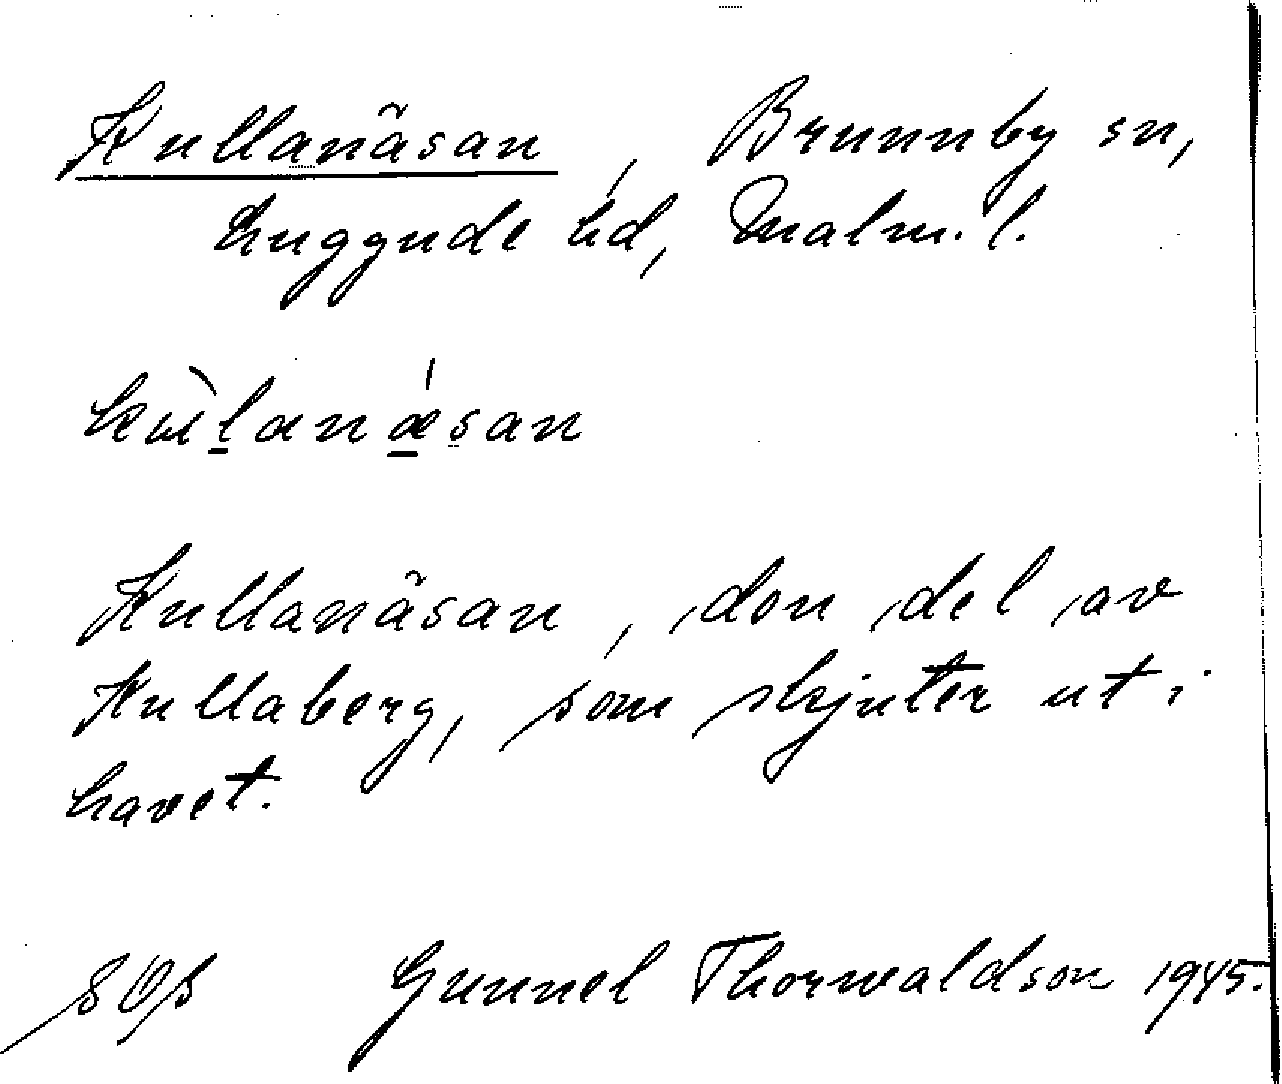 Kullanäsan, Brunnby sn,
Luggude hd, Malm. l.
Kullanäsan, den del av
Kullaberg, som skjuter ut i
havet.
Gunnel Thorwaldson 1945.